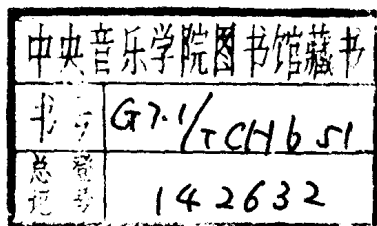 中央音乐学院图书馆藏书
书号 G7.1/TCH b51
总登记号 142632